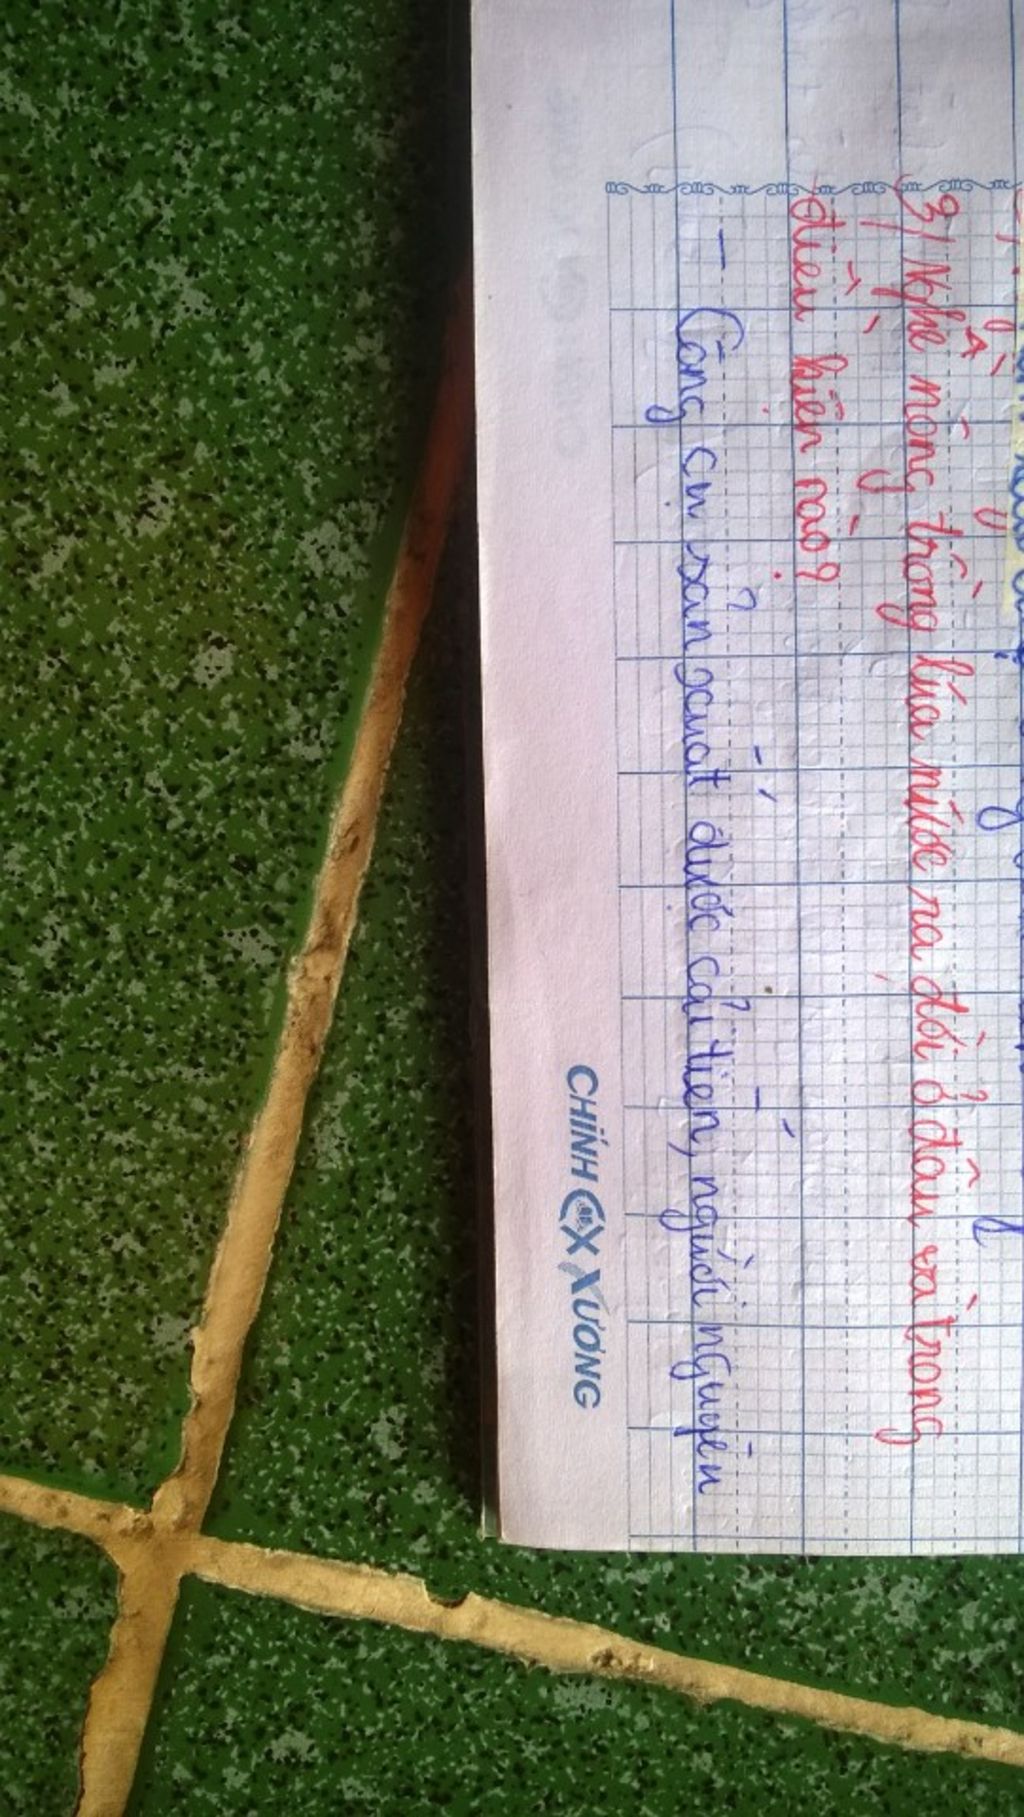 3/ Nghề nông trồng lúa nước ra đời ở đâu và trong
điều kiện nào?
- Công cụ sản xuất được cải tiến, người nguyên
CHÍNH XƯƠNG